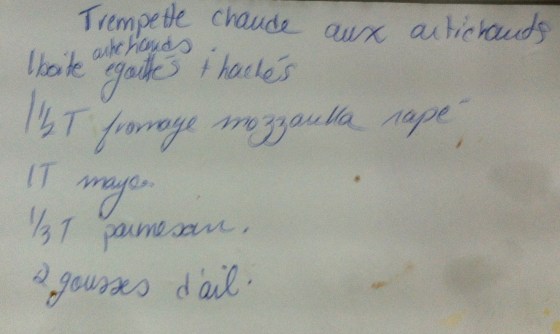 Trempette chaude aux artichauds
artichauds
1 boite égouttés + hachés
1 1/2 T fromage mozzarella rapé
1T mayo
1/3 T parmesan.
2 gousses d'ail.